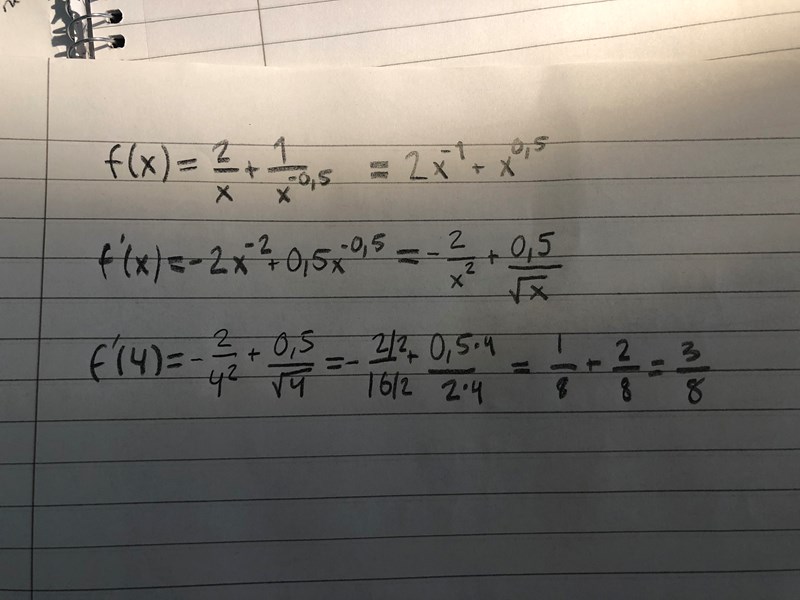 f(x) = 2/x + 1/x^-0,5 = 2x^-1 + x^0,5
f'(x) = -2x^-2 + 0,5x^-0,5 = -2/x^2 + 0,5/√x
f'(4) = -2/4^2 + 0,5/√4 = -(2/2)/(16/2) + (0,5·4)/(2·4) = 1/8 + 2/8 = 3/8